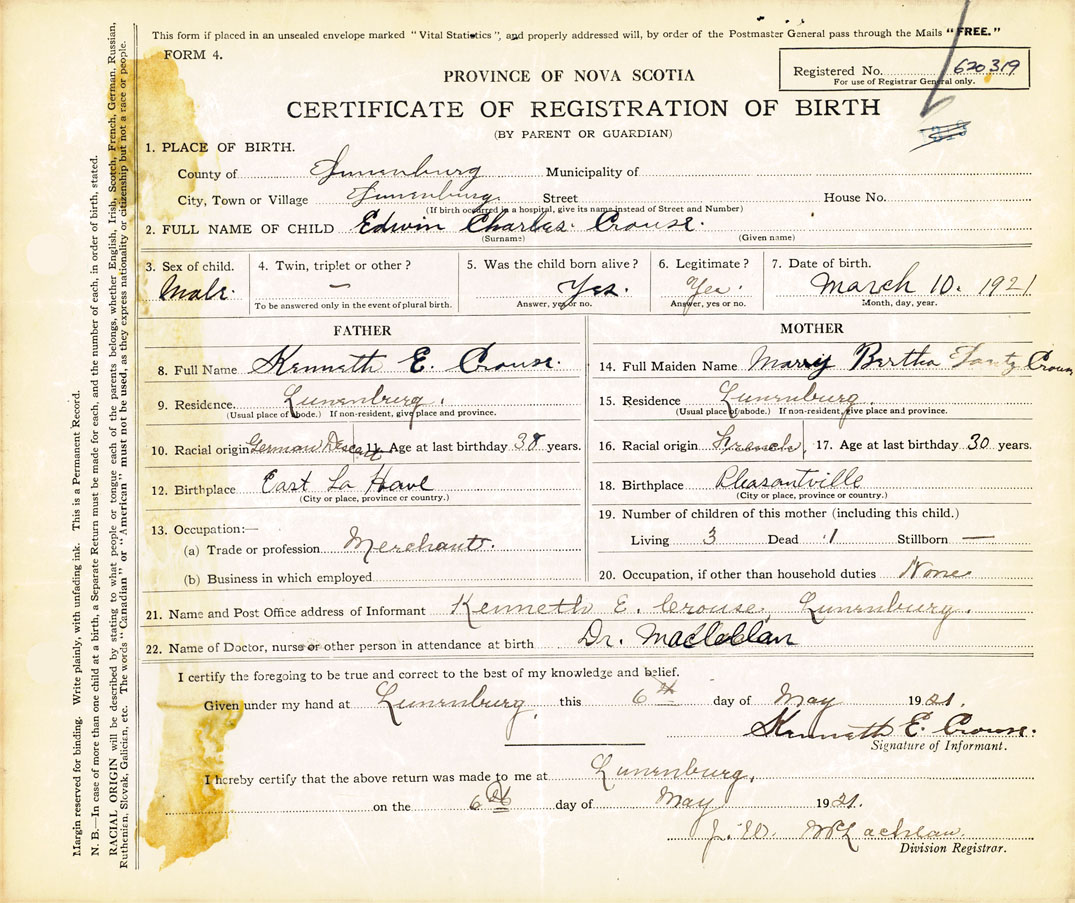 This form if placed in an unsealed envelope marked "Vital Statistics", and properly addressed will, by order of the Postmaster General pass through the Mails "FREE."
FORM 4.
Registered No. 620319
For use of Registrar General only.
PROVINCE OF NOVA SCOTIA
CERTIFICATE OF REGISTRATION OF BIRTH
(BY PARENT OR GUARDIAN)
1. PLACE OF BIRTH.
County of Lunenburg Municipality of
City, Town or Village Lunenburg Street House No.
(If birth occurred in a hospital, give its name instead of Street and Number)
2. FULL NAME OF CHILD Edwin Charles. Crouse.
(Surname) (Given name)
3. Sex of child. 4. Twin, triplet or other? 5. Was the child born alive? 6. Legitimate? 7. Date of birth.
Male. — Yes. Yes. March 10. 1921
To be answered only in the event of plural birth. Answer, yes or no. Answer, yes or no. Month, day, year.
FATHER MOTHER
8. Full Name Kenneth E. Crouse. 14. Full Maiden Name Marry Bertha Crouse
9. Residence. Lunenburg. 15. Residence Lunenburg.
(Usual place of abode.) If non-resident, give place and province. (Usual place of abode.) If non-resident, give place and province.
10. Racial origin German 11. Age at last birthday 38 years. 16. Racial origin French 17. Age at last birthday 30 years.
12. Birthplace East La Have 18. Birthplace Pleasantville
(City or place, province or country.) (City or place, province or country.)
13. Occupation:— 19. Number of children of this mother (including this child.)
(a) Trade or profession Merchant. Living 3 Dead 1 Stillborn —
(b) Business in which employed 20. Occupation, if other than household duties None
21. Name and Post Office address of Informant Kenneth E. Crouse, Lunenburg.
22. Name of Doctor, nurse or other person in attendance at birth Dr. Maclellan
I certify the foregoing to be true and correct to the best of my knowledge and belief.
Given under my hand at Lunenburg, this 6th day of May 1921.
Kenneth E. Crouse.
Signature of Informant.
I hereby certify that the above return was made to me at Lunenburg,
on the 6th day of May 1921.
J. W. McLachlan.
Division Registrar.
Margin reserved for binding. Write plainly, with unfading ink. This is a Permanent Record.
N. B.—In case of more than one child at a birth, a Separate Return must be made for each, and the number of each, in order of birth, stated.
RACIAL ORIGIN will be described by stating to what people or tongue each of the parents belongs, whether English, Irish, Scotch, French, German, Russian,
Ruthenian, Slovak, Galicien, etc. The words "Canadian" or "American" must not be used, as they express nationality or citizenship but not a race or people.